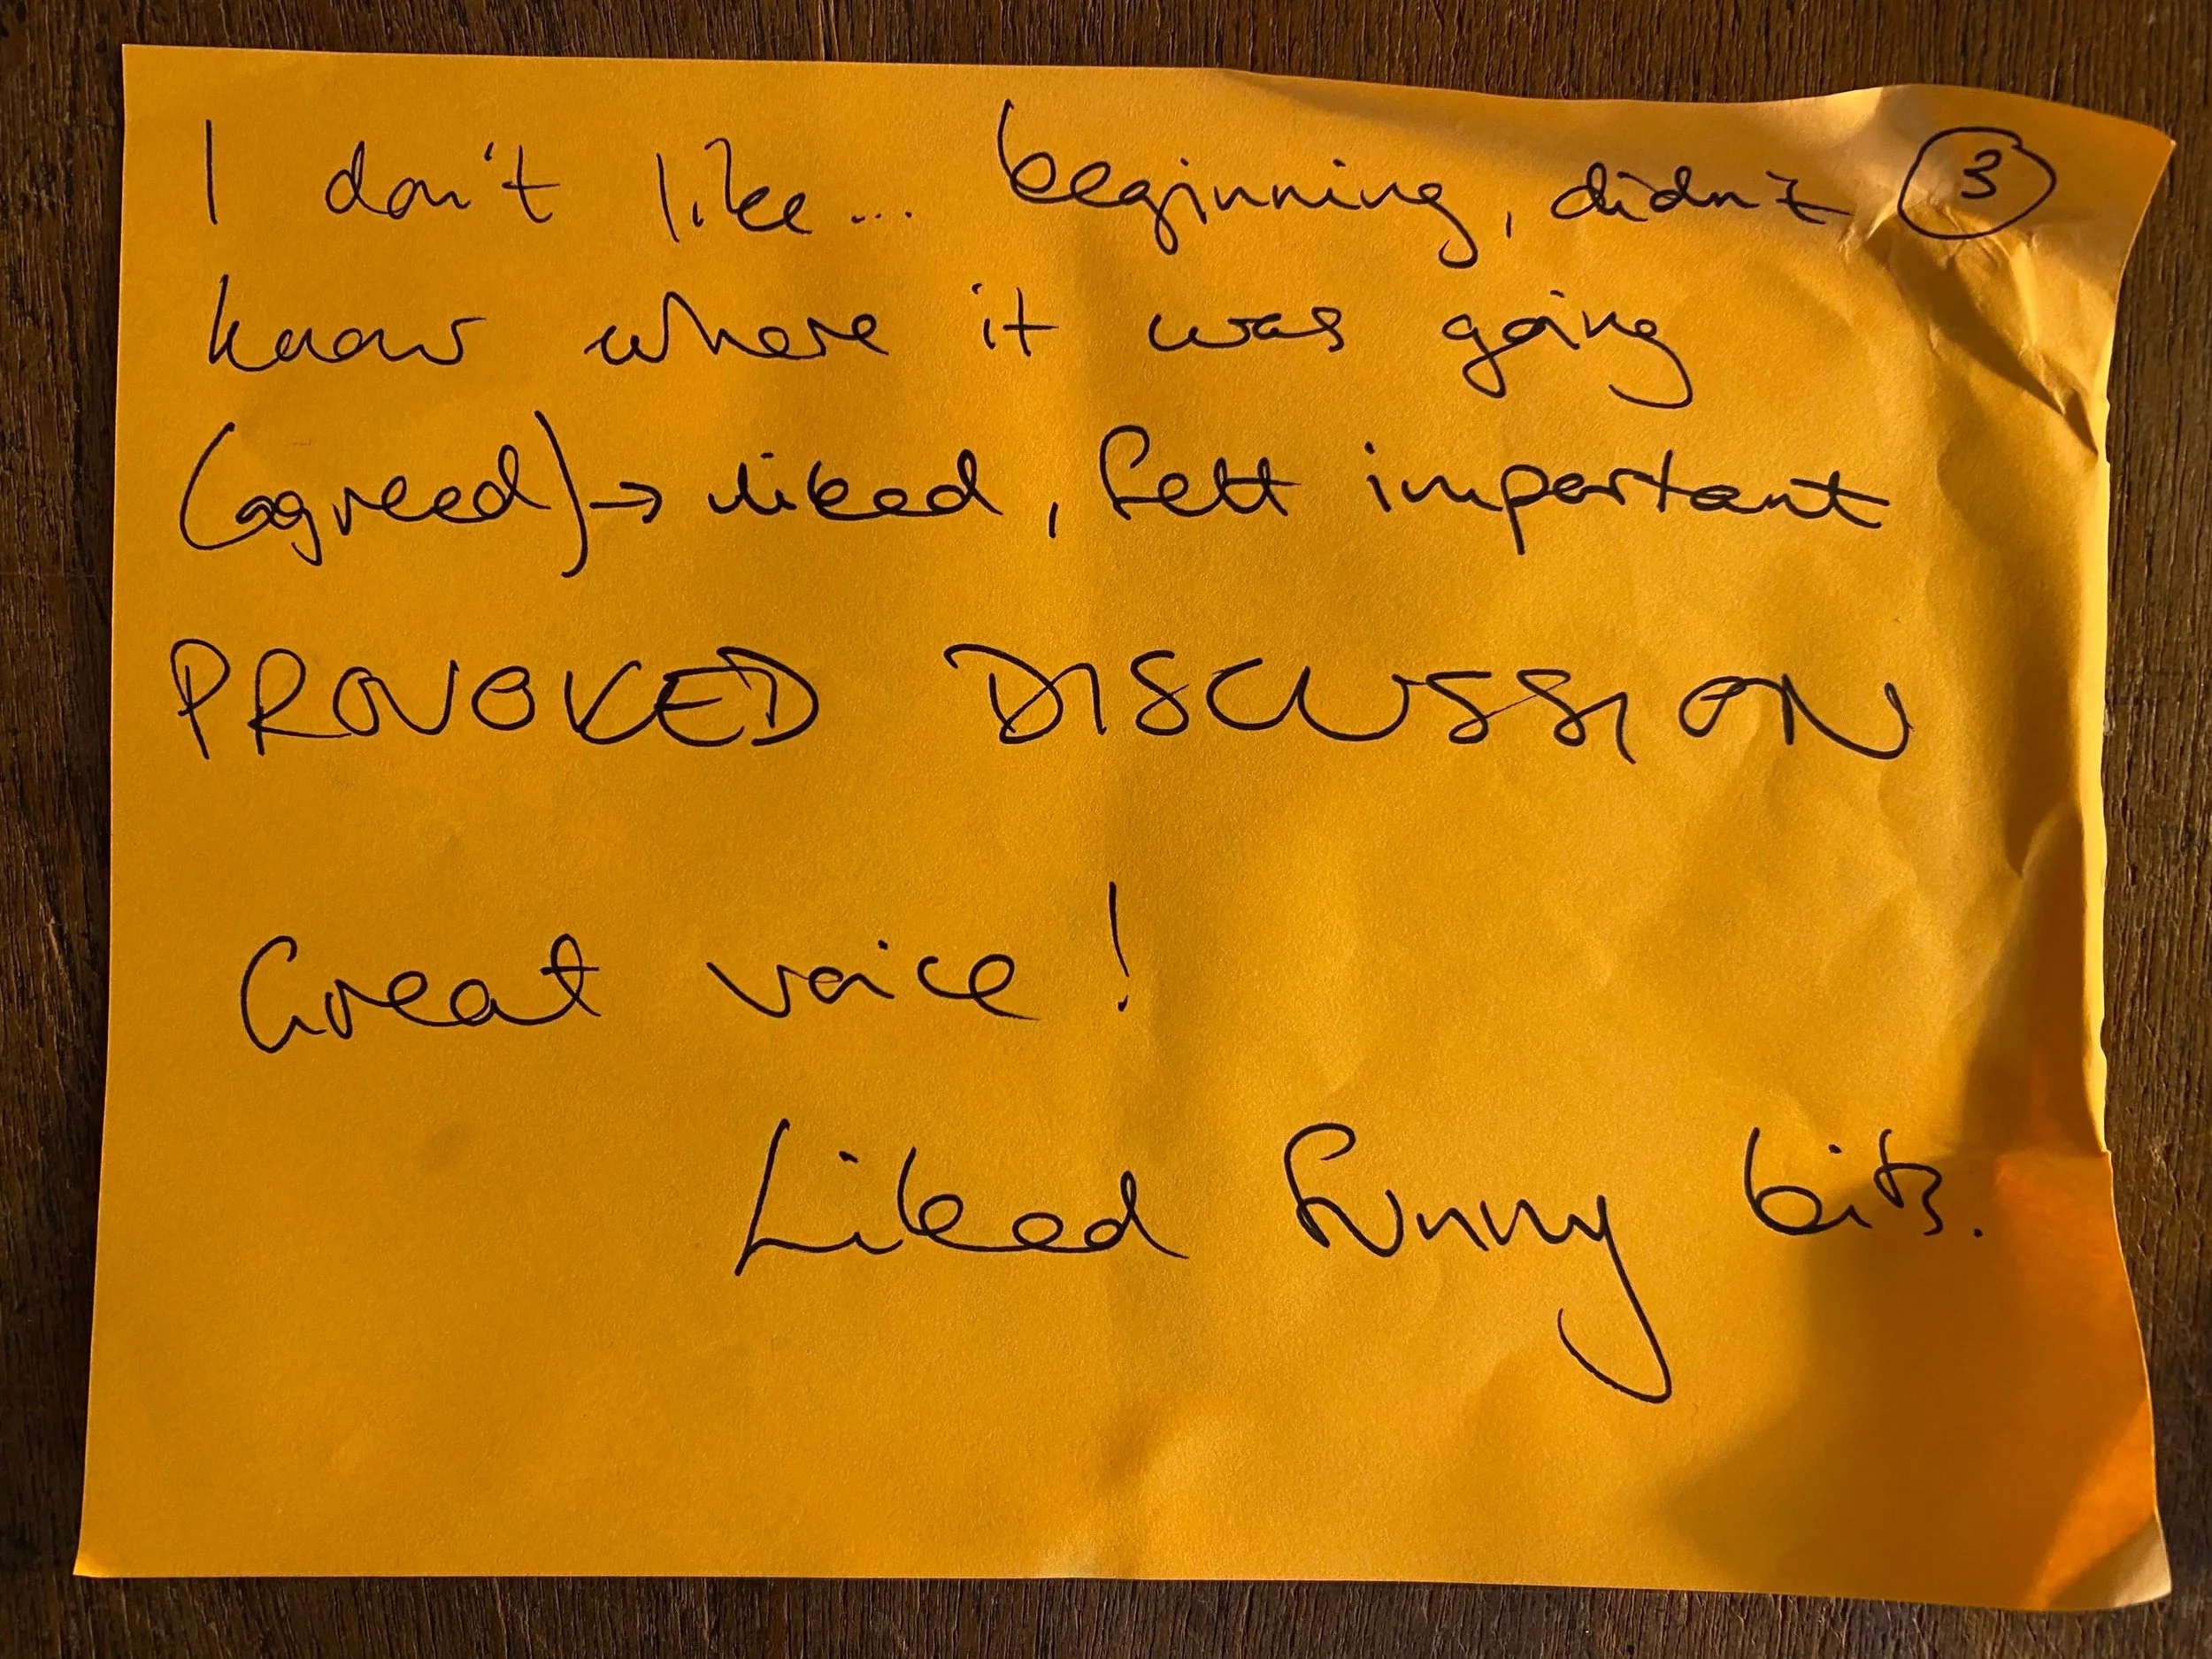 I don't like... beginning, didn't ③
know where it was going
(agreed) → liked, felt important
PROVOKED DISCUSSION
Great voice!
Liked funny bits.